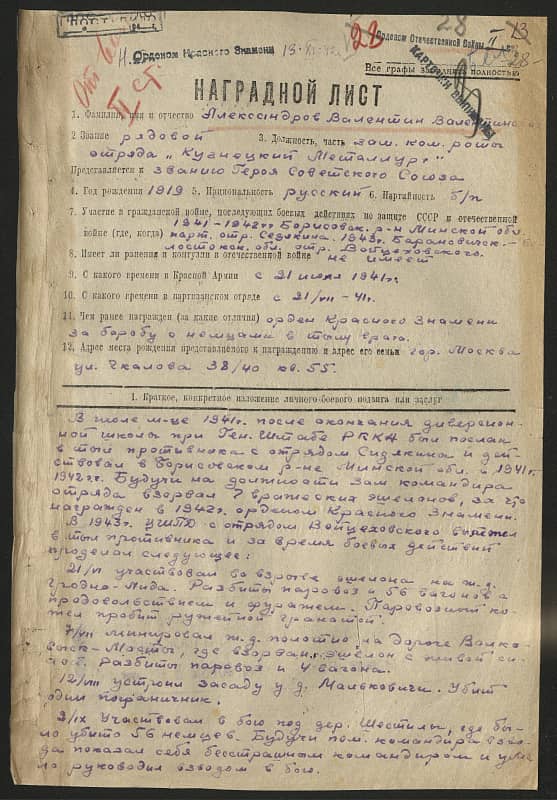 Н. Орденом Красного Знамени 28
28 13
Орденом Отечественной Войны II
Все графы заполнять полностью
КАРТОЧКИ ВЫПИСАНЫ
НАГРАДНОЙ ЛИСТ
1. Фамилия, имя и отчество Александров Валентин
2 Звание рядовой 3. Должность, часть зам. ком. роты
отряда „Кузнецкий Металлург"
Представляется к званию Героя Советского Союза
4. Год рождения 1919 5. Национальность русский 6. Партийность б/п
7. Участие в гражданской войне, последующих боевых действиях по защите СССР и отечественной
1941-1942гг Борисовск. р-н Минской обл.
войне (где, когда) парт. отр. Седякина. 1943г. Барановичск.-
лостокск. обл. отр. Войцеховского.
8. Имеет ли ранения и контузии в отечественной войне не имеет
9. С какого времени в Красной Армии с 21 июля 1941г.
10. С какого времени в партизанском отряде с 21/VII - 41г.
11. Чем ранее награжден (за какие отличия) орден Красного Знамени
за борьбу с немцами в тылу врага.
12. Адрес места рождения представляемого к награждению и адрес его семьи гор. Москва
ул. Чкалова 38/40 кв. 55.
1. Краткое, конкретное изложение личного боевого подвига или заслуг
В июле м-це 1941г. после окончания диверсион-
ной школы при Ген. Штабе РККА был послан
в тыл противника с отрядом Сидякина и дей-
ствовал в Борисовском р-не Минской обл. в 1941г.
1942гг. Будучи на должности зам командира
отряда взорвал 7 вражеских эшелонов, за что
награжден в 1942г. орденом Красного Знамени.
В 1943г. УШПД с отрядом Войцеховского
в тыл противника и за время боевых действий
проделал следующее:
21/VI участвовал во взрыве эшелона на ж.д.
Гродно-Лида. Разбиты паровоз и 56 вагонов с
продовольствием и фуражем. Паровозный ко-
тел пробит ружейной гранатой.
7/VII минировал ж.д. полотно на дороге Волко-
выск-Мосты, где взорван эшелон с живой си-
лой. Разбиты паровоз и 4 вагона.
12/VIII устроил засаду у д. Маньковичи. Убит
один пограничник.
3/IX Участвовал в бою под дер. Шестилы, где бы-
ло убито 56 немцев. Будучи пом. командира взво-
да показал себя бесстрашным командиром и уме-
ло руководил взводом в бою.